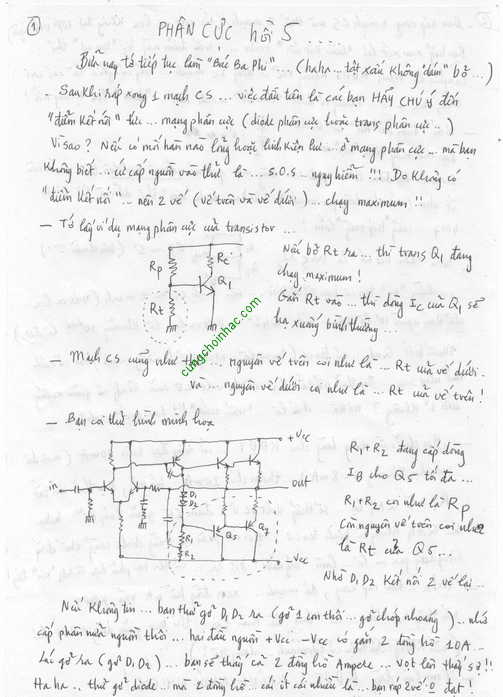 1
PHÂN CỰC hồi 5 ....
Bữa nay tớ tiếp tục làm "Bác Ba Phi" ... (haha .. tật xấu không "dám" bỏ ...)
- Sau khi ráp xong 1 mạch CS ... việc đầu tiên là các bạn HÃY CHÚ Ý đến
"điểm kết nối" tức ... mạng phân cực (diode phân cực hoặc trans phân cực ..)
Vì sao? Nếu có mối hàn nào lỏng hoặc linh kiện hư ... ở mạng phân cực ... mà bạn
không biết ... cứ cấp nguồn vào thử là ... S.O.S .. nguy hiểm !!! Do không có
"điểm kết nối" .. nên 2 vế (vế trên và vế dưới) ... chạy maximum !!
- Tớ lấy ví dụ mạng phân cực của transistor ...
Rp
Rc
Q1
Rt
Nếu bỏ Rt ra ... thì trans Q1 đang
chạy maximum !
Gắn Rt vào ... thì dòng Ic của Q1 sẽ
hạ xuống bình thường
cungchoinhac.com
- Mạch CS cũng như thế ... nguyên vế trên coi như là ... Rt của vế dưới.
Và ... nguyên vế dưới coi như là ... Rt của vế trên !
- Bạn coi thử hình minh họa
+Vcc
in
out
D1
D2
R1
R2
Q5
Q7
-Vcc
R1+R2 đang cấp dòng
IB cho Q5 tối đa ...
R1+R2 coi như là Rp
Còn nguyên vế trên coi như
là Rt của Q5 ...
Nhờ D1 D2 kết nối 2 vế lại ...
Nếu không tin ... bạn thử gỡ D1 D2 ra (gỡ 1 con thôi ... gỡ chớp nhoáng) .. nhớ
cấp phân nửa nguồn thôi ... hai đầu nguồn +Vcc -Vcc có gắn 2 đồng hồ 10A ...
Lúc gỡ ra (gỡ D1 D2) ... bạn sẽ thấy cả 2 đồng hồ Ampere ... vọt lên thấy sợ !!
Ha ha .. thử gỡ diode ... mà 2 đồng hồ .. cái ít cái nhiều là ... bạn ráp 2 vế 0 đạt !